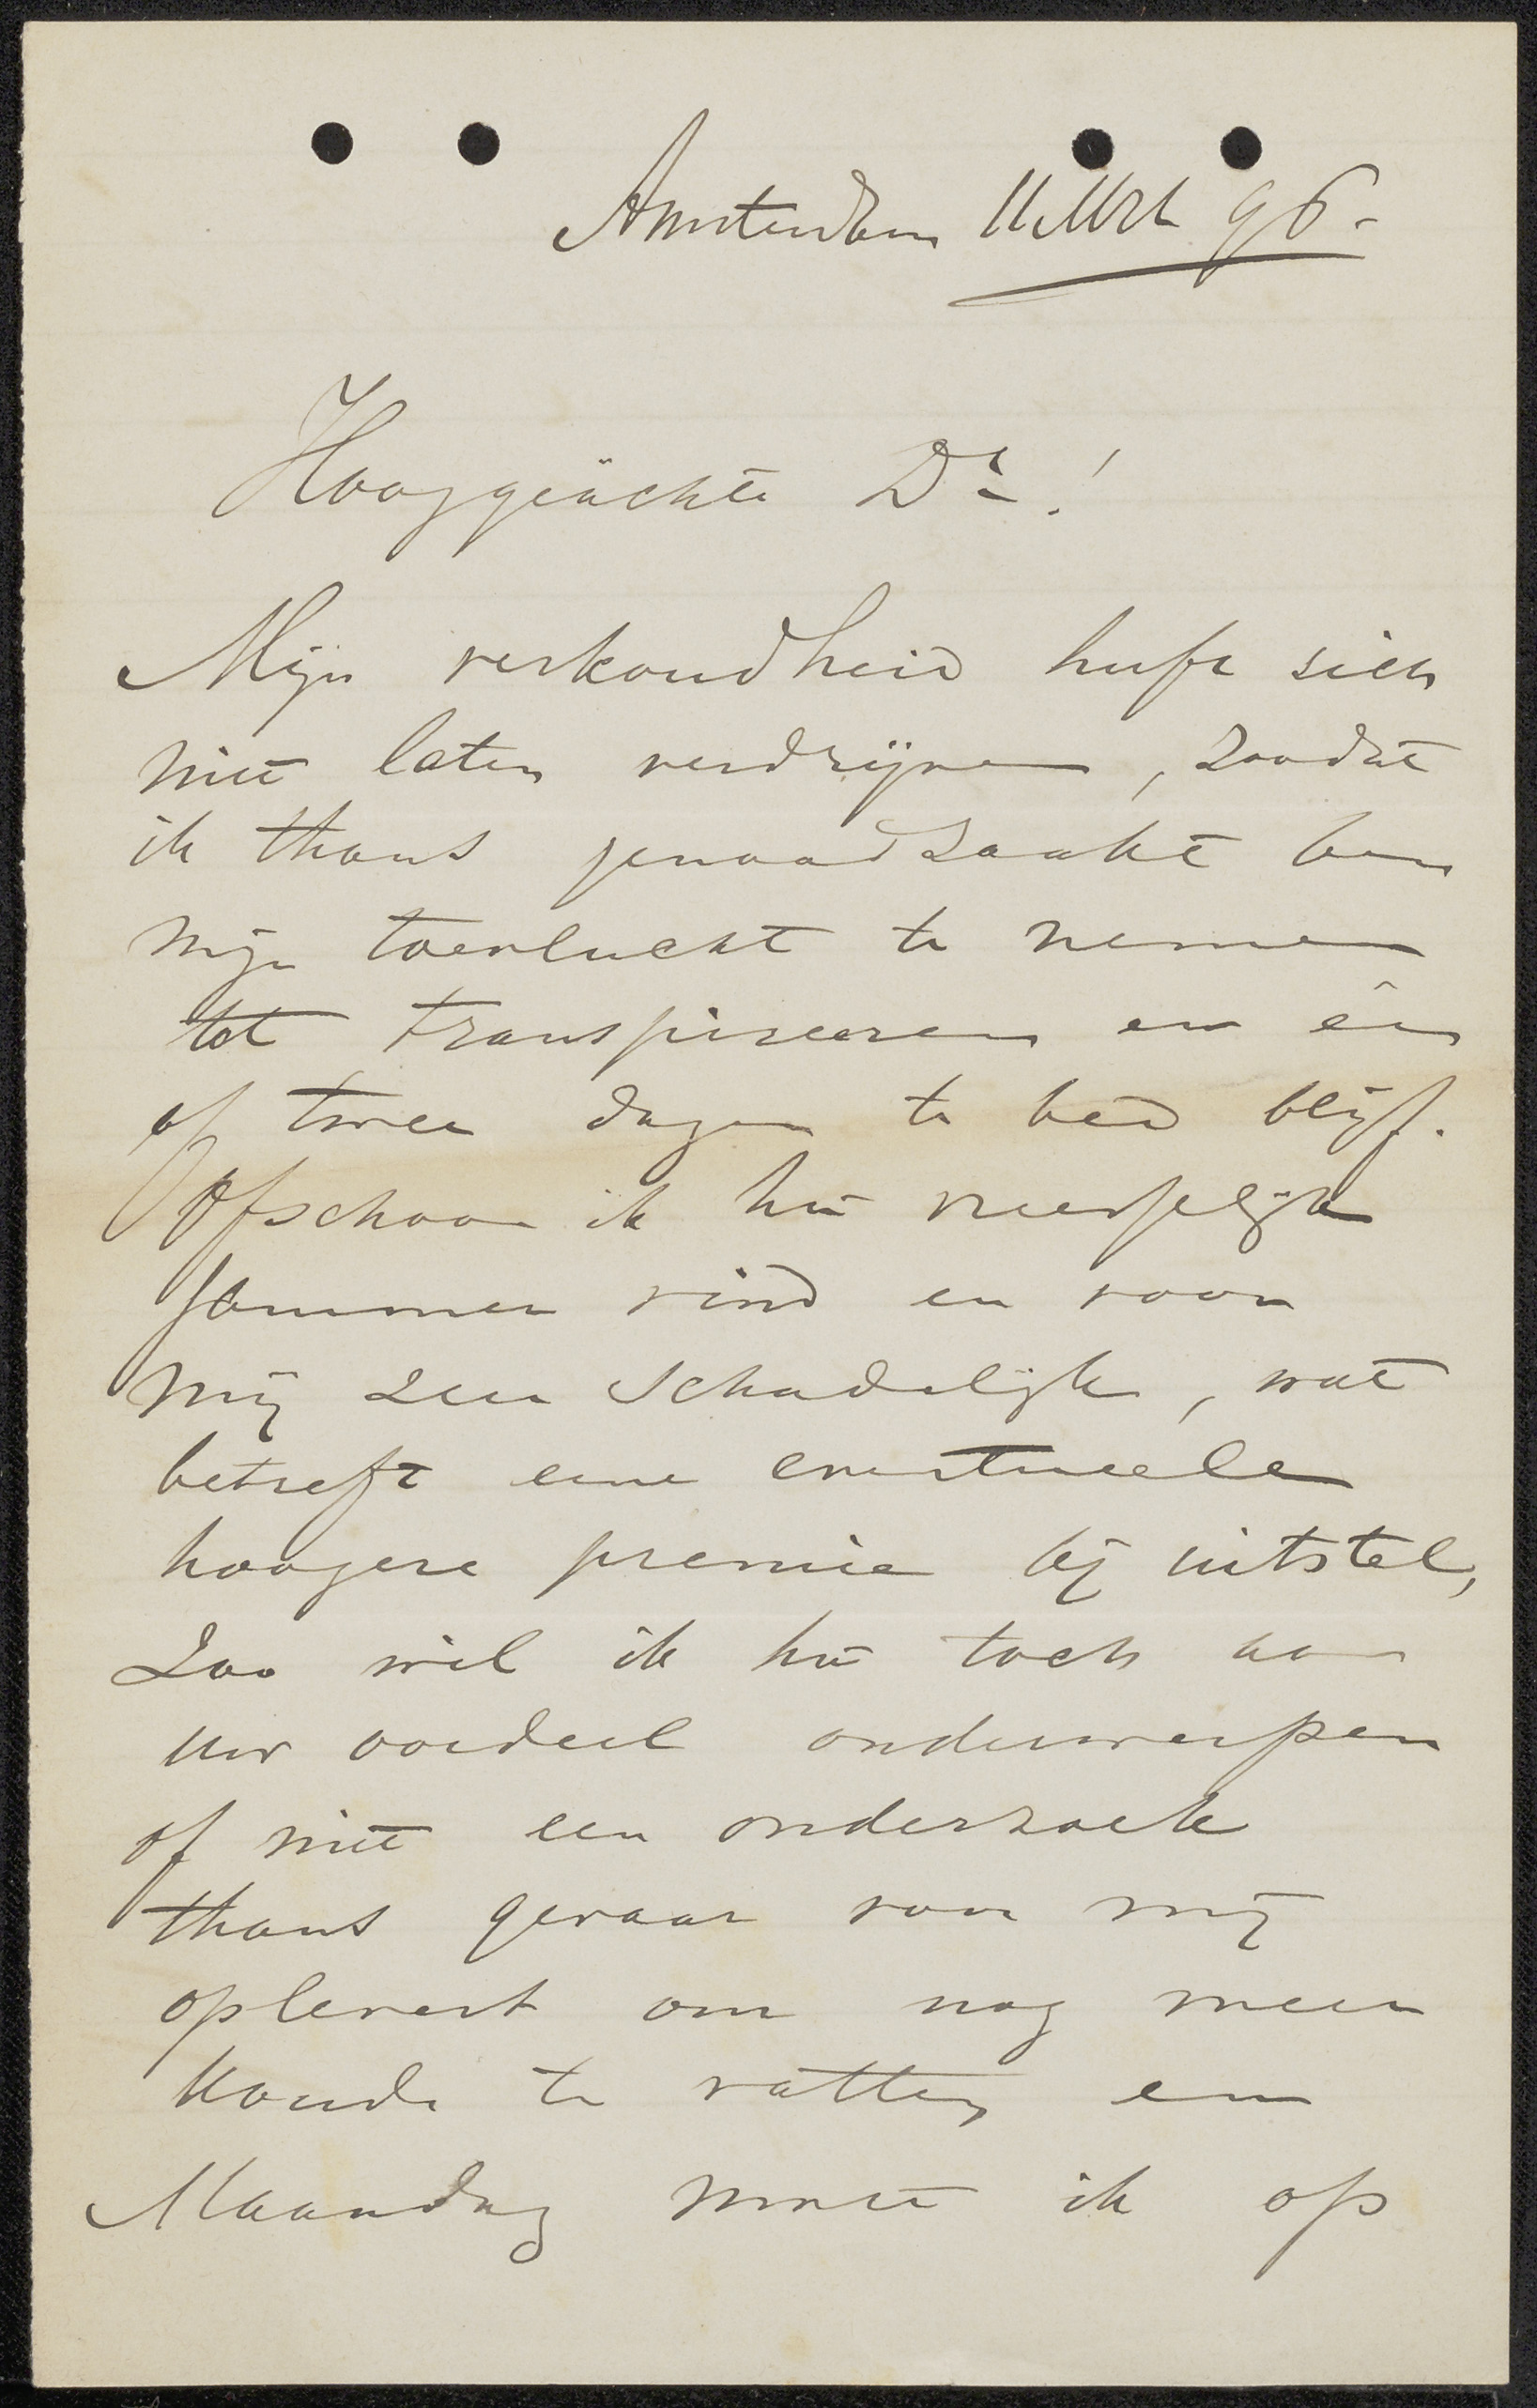 Amsterdam 11 Mrt 96.
Hooggeachte Dr.!
Mijn verkoudheid heeft zich
niet laten verdrijven, zoodat
ik thans genoodzaakt ben
mijn toevlucht te nemen
tot transpireeren en één
of twee dagen te bed blijf.
Ofschoon ik het vreeselijk
jammer vind en voor
mij zeer schadelijk, wat
betreft eene eventueele
hoogere premie bij uitstel,
Zoo wil ik het toch aan
uw oordeel onderwerpen
of niet een onderzoek
thans gevaar voor mij
oplevert om nog meer
koude te vatten en
Maandag moet ik op